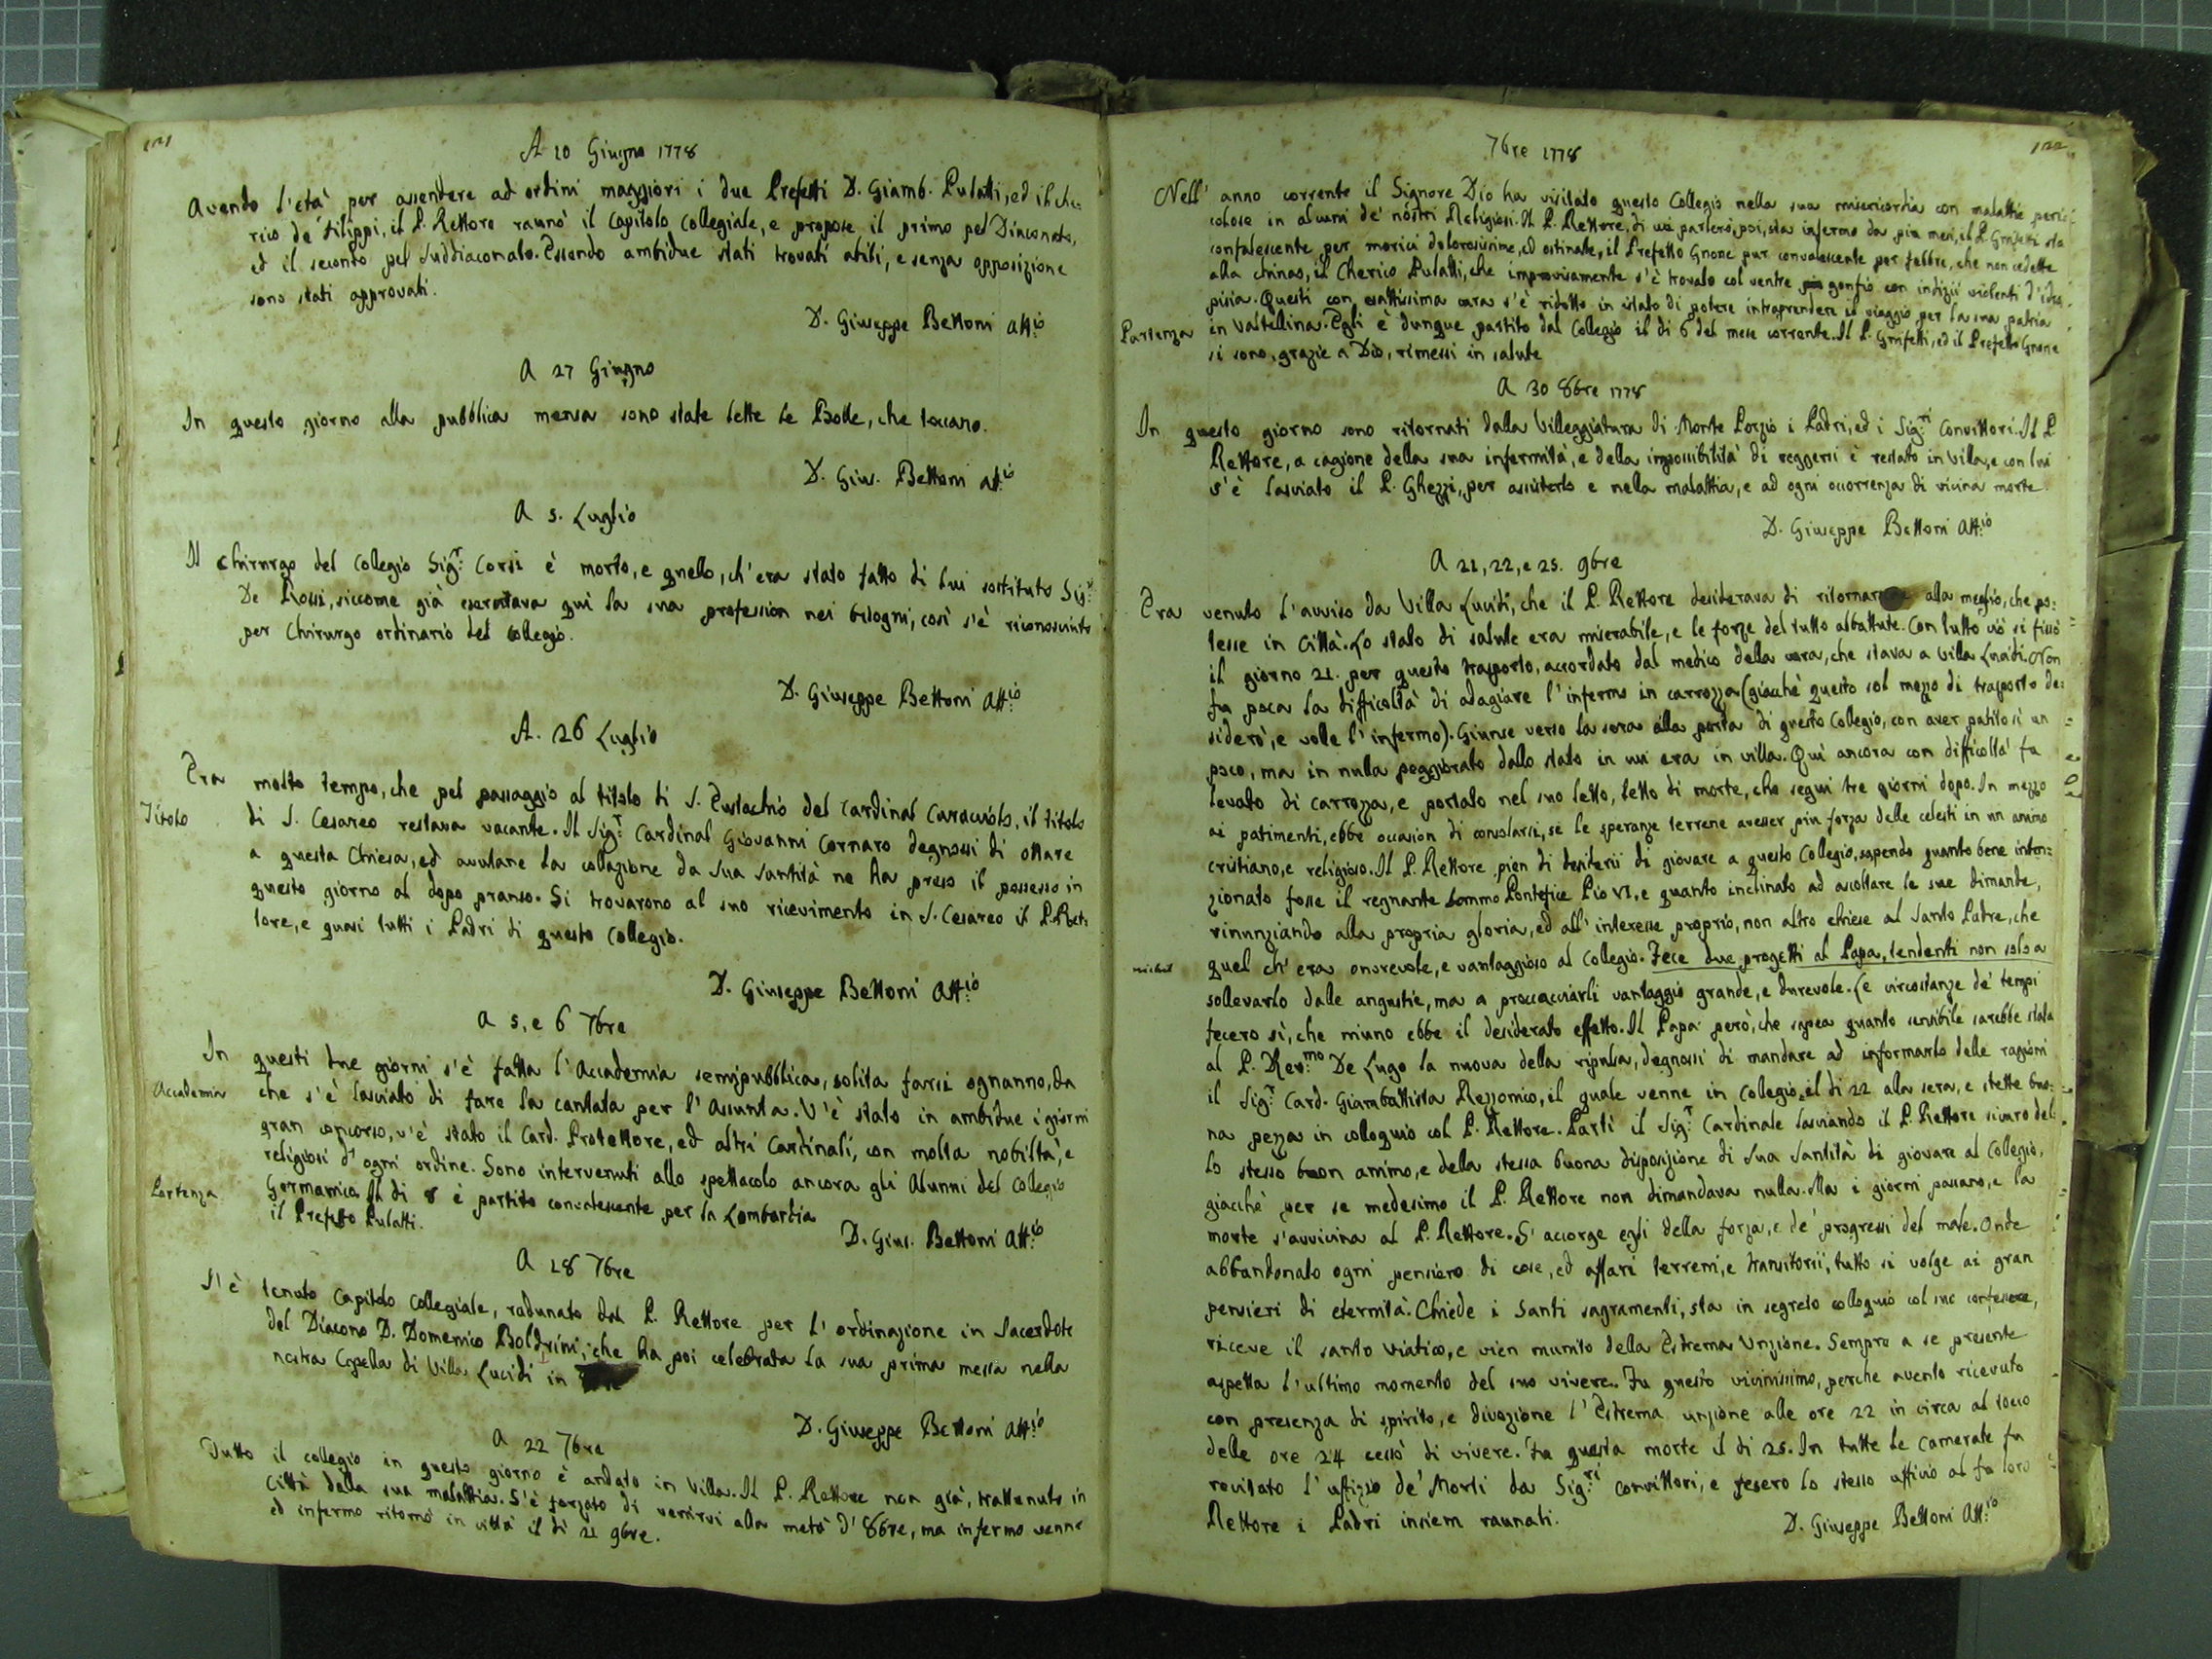 121
A 10 Giugno 1778
Avendo l'età per ascendere ad ordini maggiori i due Prefetti D. Giamb. Pulatti, ed il che=
rico de' Filippi, il P. Rettore raunò il Capitolo Collegiale, e propose il primo pel Diaconato,
ed il secondo pel Suddiaconato. Essendo ambidue stati trovati abili, e senza opposizione
sono stati approvati.
D. Giuseppe Bettoni Att.io
A 27 Giugno
In questo giorno alla pubblica mensa sono state lette le Bolle, che toccano.
D. Gius. Bettoni att.io
A 5. Luglio
Il Chirurgo del Collegio Sig.r Corsi è morto, e quello, ch'era stato fatto di lui sostituto Sig.r
De Rossi, siccome già esercitava quì la sua profession nei bisogni, così s'è riconosciuto
per Chirurgo ordinario del Collegio.
D. Giuseppe Bettoni Att.io
A. 26 Luglio
Era molto tempo, che pel passaggio al titolo di S. Eustachio del Cardinal Caracciolo, il titolo
Titolo di S. Cesareo restava vacante. Il Sig.r Cardinal Giovanni Cornaro degnossi di ottare
a questa Chiesa, ed avutane la collazione da Sua Santità ne ha preso il possesso in
questo giorno al dopo pranso. Si trovarono al suo ricevimento in S. Cesareo il P. Ret=
tore, e quasi tutti i Padri di questo Collegio.
D. Giuseppe Bettoni Att.io
A 5, e 6 7bre
In questi due giorni s'è fatta l'Accademia semipubblica, solita farsi ognanno, da
Accademia che s'è lasciato di fare la cantata per l'Assunta. V'è stato in ambidue i giorni
gran concorso, v'è stato il Card. Protettore, ed altri Cardinali, con molta nobiltà, e
religiosi d'ogni ordine. Sono intervenuti allo spettacolo ancora gli Alunni del Collegio
Partenza Germanico. Il di 8 è partito convalescente per la Lombardia
il Prefetto Pulatti.
D. Gius. Bettoni Att.io
A 18 7bre
S'è tenuto Capitolo Collegiale, radunato dal P. Rettore per l'ordinazione in Sacerdote
del Diacono D. Domenico Boldrini, che ha poi celebrata la sua prima messa nella
nostra Capella di Villa Lucidi in
D. Giuseppe Bettoni Att.io
A 22 7bre
Tutto il collegio in questo giorno è andato in Villa. Il P. Rettore non già, trattenuto in
Città dalla sua malattia. S'è forzato di venirvi alla metà d'8bre, ma infermo venne
ed infermo ritornò in città il dì 21 9bre.
122
7bre 1778
Nell'anno corrente il Signore Dio ha visitato questo Collegio nella sua misericordia con malattie peri=
colose in alcuni de' nostri Religiosi. Il P. Rettore, di cui parlerò poi, sta infermo da più mesi, il P. Griffetti sta
confalescente per morici dolorosissime, ed ostinate, il Prefetto Gnone pur convalescente per febbre, che non cedette
alla chinas, il Cherico Pulatti, che improvisamente s'è trovato col ventre gonfio con indizii violenti d'idro=
pisia. Questi con esattissima cura s'è ridotto in istato di potere intraprendere il viaggio per la sua patria
Partenza in Valtellina. Egli è dunque partito dal Collegio il di 6 del mese corrente. Il P. Griffetti, ed il Prefetto Gnone
si sono, grazie a Dio, rimessi in salute
A 30 8bre 1778
In questo giorno sono ritornati dalla Villeggiatura di Monte Porzio i Padri, ed i Sig.ri Convittori. Il P.
Rettore, a cagione della sua infermità, e della impossibilità di reggersi è restato in Villa, e con lui
s'è lasciato il P. Ghezzi, per assisterlo e nella malattia, e ad ogni occorrenza di vicina morte.
D. Giuseppe Bettoni Att.io
A 21, 22, e 25. 9bre
Era venuto l'avviso da Villa Lucidi, che il P. Rettore desiderava di ritornare alla meglio, che po=
tesse in Città. Lo stato di salute era miserabile, e le forze del tutto abbattute. Con tutto ciò si fissò
il giorno 21. per questo trasporto, accordato dal medico della cura, che stava a Villa Lucidi. Non
fu poca la difficoltà di adagiare l'infermo in carrozza (giacchè questo sol mezzo di trasporto de=
siderò, e volle l'infermo). Giunse verso la sera alla porta di questo Collegio, con aver patito sì un
poco, ma in nulla peggiorato dallo stato in cui era in villa. Quì ancora con difficoltà fu
levato di carrozza, e portato nel suo letto, letto di morte, che seguì tre giorni dopo. In mezzo
ai patimenti, ebbe occasion di consolarsi, se le speranze terrene avesser più forza delle celesti in un animo
cristiano, e religioso. Il P. Rettore pien di desiderii di giovare a questo Collegio, sapendo quanto bene inten=
zionato fosse il regnante Sommo Pontefice Pio VI, e quanto inclinato ad ascoltare le sue dimande,
rinunziando alla propria gloria, ed all'interesse proprio, non altro chiese al Santo Padre, che
quel ch'era onorevole, e vantaggioso al Collegio. Fece due progetti al Papa, tendenti non solo a
sollevarlo dalle angustie, ma a procacciarli vantaggio grande, e durevole. Le circostanze de' tempi
fecero sì, che niuno ebbe il desiderato effetto. Il Papa però, che sapea quanto sensibile sarebbe stata
al P. Rev.mo De Lugo la nuova della ripulsa, degnossi di mandare ad informarlo delle ragioni
il Sig.r Card. Giambattista Rezzonico, il quale venne in Collegio il di 22 alla sera, e stette buo=
na pezza in colloquio col P. Rettore. Partì il Sig.r Cardinale lasciando il P. Rettore sicuro del=
lo stesso buon animo, e della stessa buona disposizione di Sua Santità di giovare al Collegio,
giacchè per se medesimo il P. Rettore non dimandava nulla. Ma i giorni passano, e la
morte s'avvicina al P. Rettore. S'accorge egli della forza, e de' progressi del male. Onde
abbandonato ogni pensiero di cose, ed affari terreni, e transitorii, tutto si volge ai gran
pensieri di eternità. Chiede i Santi sagramenti, sta in segreto colloquio col suo confessore,
riceve il santo Viatico, e vien munito della Estrema Unzione. Sempre a se presente
aspetta l'ultimo momento del suo vivere. Fu questo vicinissimo, perche avento ricevuto
con presenza di spirito, e divozione l'Estrema unzione alle ore 22 in circa al tocco
delle ore 24 cessò di vivere. Fu questa morte il di 25. In tutte le Camerate fu
recitato l'uffizio de' Morti da Sig.ri Convittori, e fesero lo stesso uffizio al fu loro
Rettore i Padri insiem raunati.
D. Giuseppe Bettoni Att.io